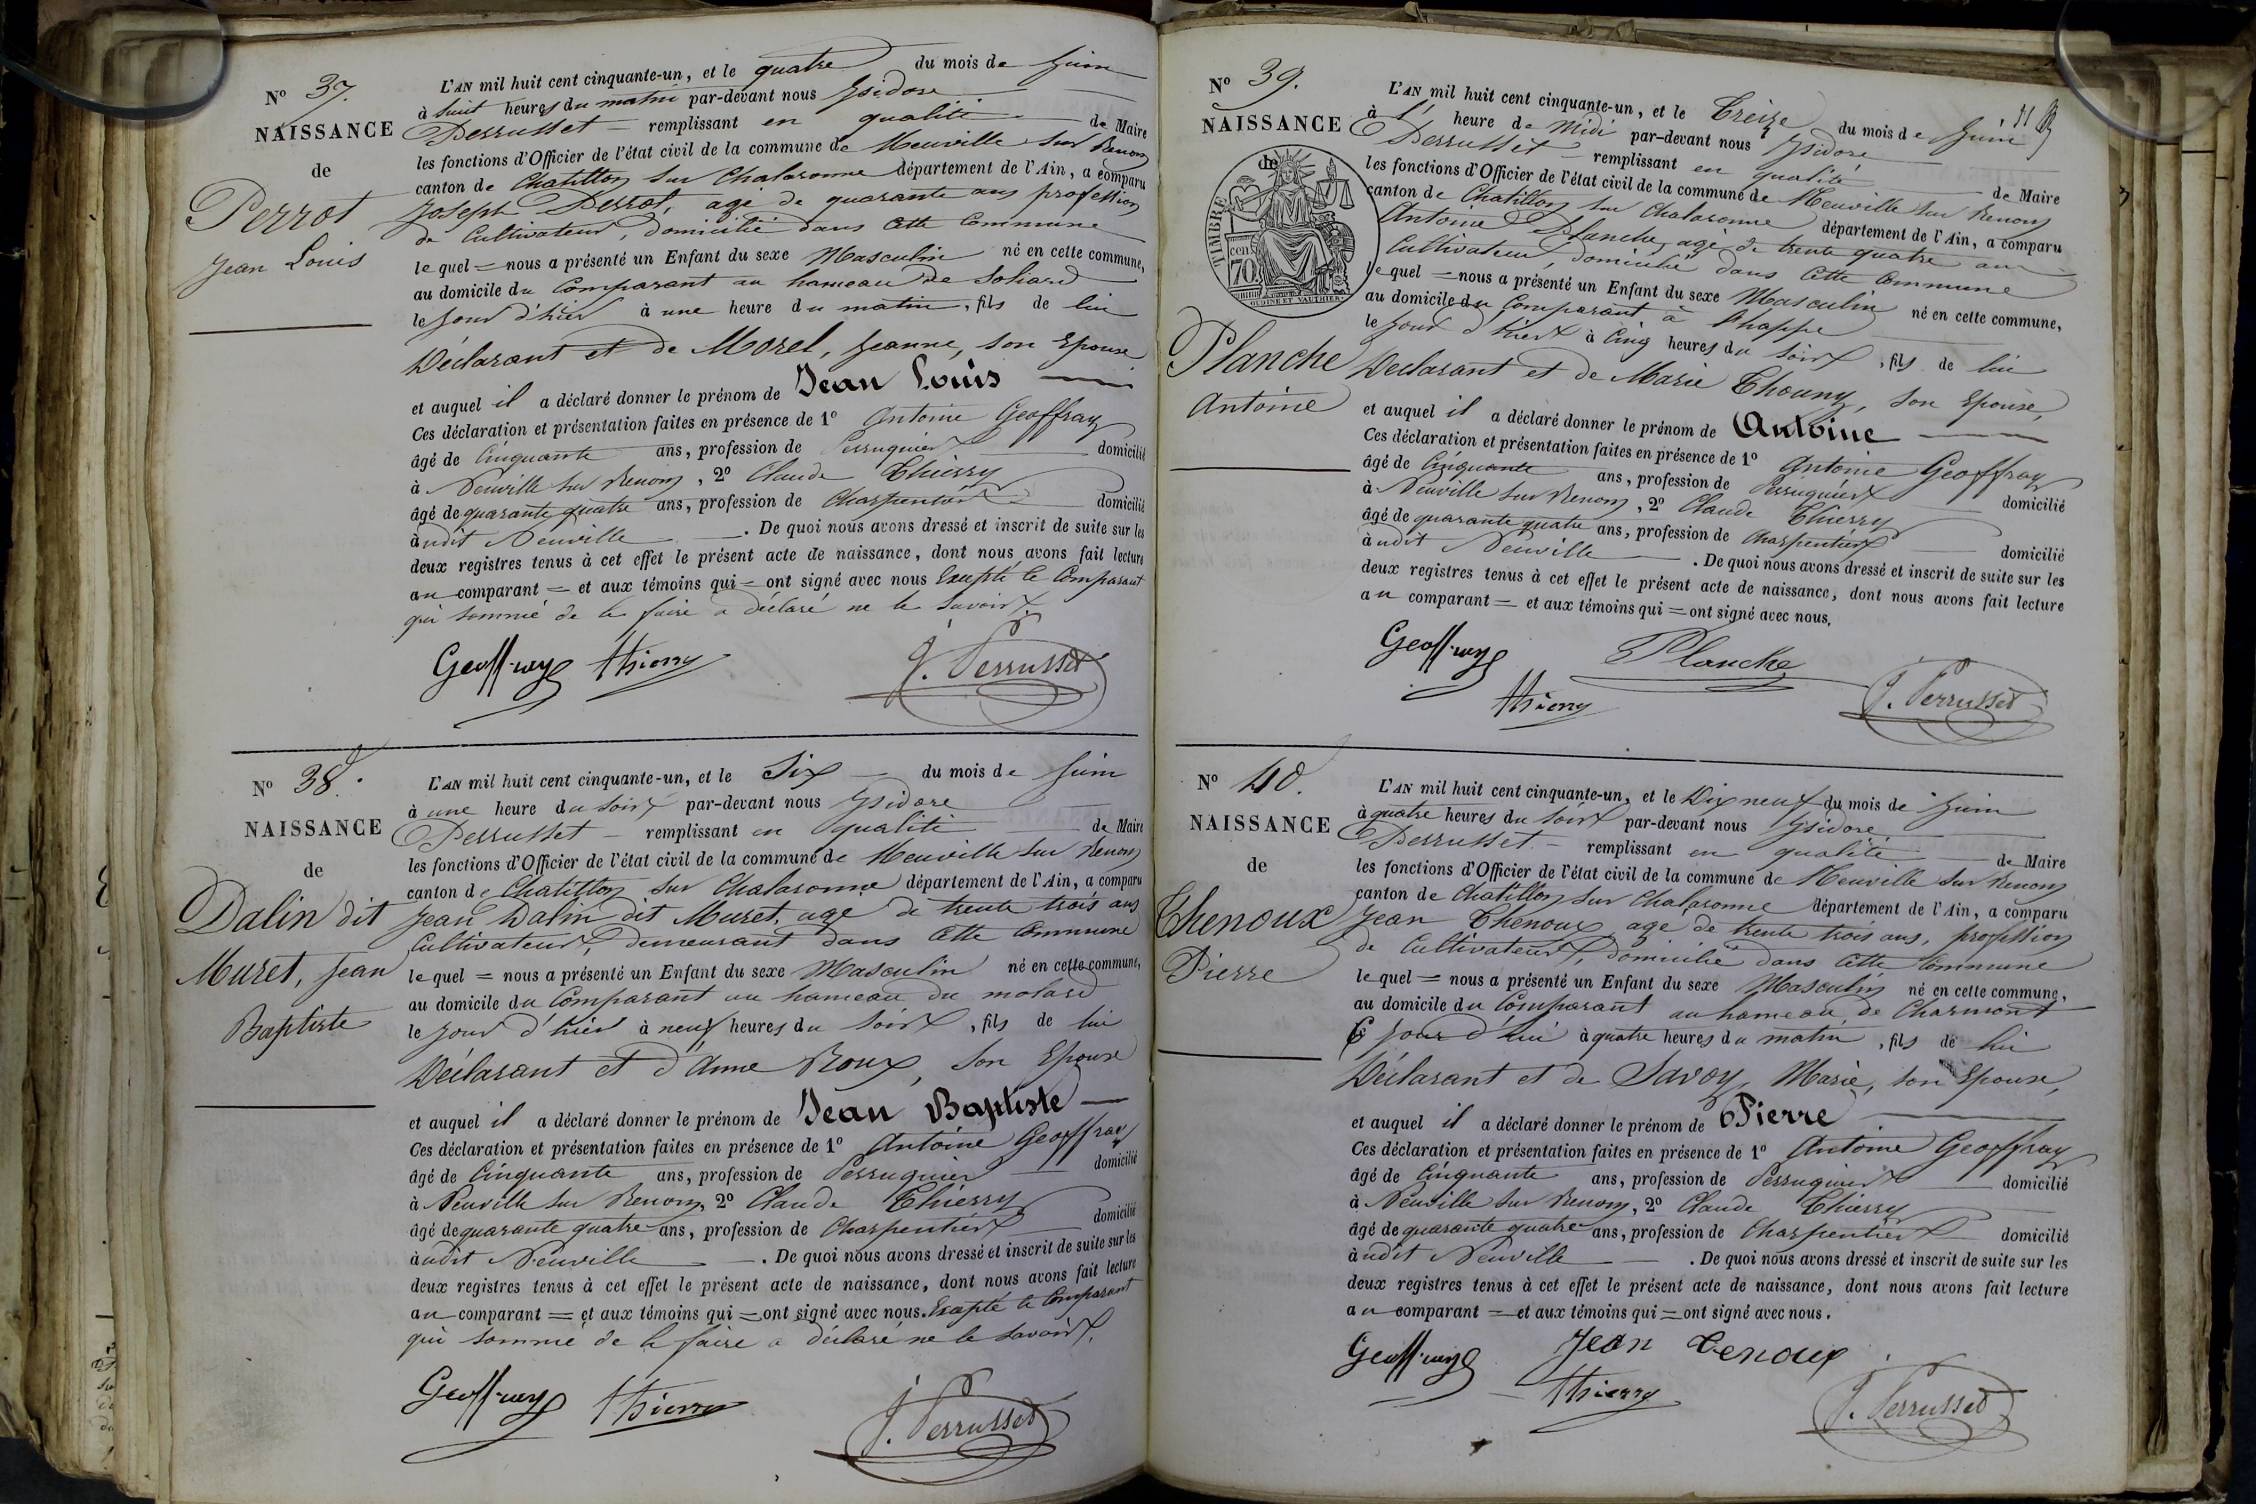 N° 37.
NAISSANCE
de
Perrot
Jean Louis
L'AN mil huit cent cinquante-un, et le quatre du mois de Juin
à huit heures du matin par-devant nous Ysidore
Perrusset remplissant en qualité de Maire
les fonctions d'Officier de l'état civil de la commune de Neuville sur Renom
canton de Chatillon sur Chalaronne département de l'Ain, a comparu
Joseph Perrot, agé de quarante ans profession
de Cultivateur, domicilié dans cette Commune
le quel = nous a présenté un Enfant du sexe Masculin né en cette commune,
au domicile du Comparant au hameau de Soliard
le jour d'hier à une heure du matin, fils de lui
Déclarant et de Morel, Jeanne, son Epouse
et auquel il a déclaré donner le prénom de Jean Louis
Ces déclaration et présentation faites en présence de 1° Antoine Geoffray
âgé de Cinquante ans, profession de Perruquier domicilié
à Neuville sur Renom, 2° Claude Thierry
âgé de quarante quatre ans, profession de Charpentier domicilié
àudit Neuville . De quoi nous avons dressé et inscrit de suite sur les
deux registres tenus à cet effet le présent acte de naissance, dont nous avons fait lecture
au comparant = et aux témoins qui = ont signé avec nous Exepté le Comparant
qui sommé de le faire a déclaré ne le savoir.
Geoffray Thierry J. Perrusset
N° 38.
NAISSANCE
de
Dalin dit
Muret, Jean
Baptiste
L'AN mil huit cent cinquante-un, et le Six du mois de Juin
à une heure du soir par-devant nous Ysidore
Perrusset remplissant en qualité de Maire
les fonctions d'Officier de l'état civil de la commune de Neuville sur Renom
canton de Chatillon sur Chalaronne département de l'Ain, a comparu
Jean Dalin dit Muret, agé de trente trois ans
Cultivateur, demeurant dans cette Commune
le quel = nous a présenté un Enfant du sexe Masculin né en cette commune,
au domicile du Comparant au hameau du molard
le jour d'hier à neuf heures du soir, fils de lui
Déclarant et d'Anne Roux, son Epouse
et auquel il a déclaré donner le prénom de Jean Baptiste
Ces déclaration et présentation faites en présence de 1° Antoine Geoffray
âgé de Cinquante ans, profession de Perruquier domicilié
à Neuville sur Renom, 2° Claude Thierry
âgé de quarante quatre ans, profession de Charpentier domicilié
àudit Neuville . De quoi nous avons dressé et inscrit de suite sur les
deux registres tenus à cet effet le présent acte de naissance, dont nous avons fait lecture
au comparant = et aux témoins qui = ont signé avec nous. Exepté le Comparant
qui sommé de le faire a déclaré ne le savoir.
Geoffray Thierry J. Perrusset
N° 39.
NAISSANCE
de
TIMBRE
70 cen
OUDINE ET VAUTHIER
Planche
Antoine
L'AN mil huit cent cinquante-un, et le Treize du mois de Juin
à l' heure de Midi par-devant nous Ysidore
Perrusset remplissant en qualité de Maire
les fonctions d'Officier de l'état civil de la commune de Neuville sur Renom
canton de Chatillon sur Chalaronne département de l'Ain, a comparu
Antoine Planche, agé de trente quatre ans
Cultivateur, domicilié dans cette Commune
le quel = nous a présenté un Enfant du sexe Masculin né en cette commune,
au domicile du Comparant à Chappe
le jour d'hier à Cinq heures du soir, fils de lui
Déclarant et de Marie Thouny, son Epouse,
et auquel il a déclaré donner le prénom de Antoine
Ces déclaration et présentation faites en présence de 1° Antoine Geoffray
âgé de Cinquante ans, profession de Perruquier domicilié
à Neuville sur Renom, 2° Claude Thierry
âgé de quarante quatre ans, profession de Charpentier domicilié
àudit Neuville . De quoi nous avons dressé et inscrit de suite sur les
deux registres tenus à cet effet le présent acte de naissance, dont nous avons fait lecture
au comparant = et aux témoins qui = ont signé avec nous.
Geoffray Planche
Thierry J. Perrusset
N° 40.
NAISSANCE
de
Thenoux
Pierre
L'AN mil huit cent cinquante-un, et le Dix neuf du mois de Juin
à quatre heures du soir par-devant nous Ysidore
Perrusset remplissant en qualité de Maire
les fonctions d'Officier de l'état civil de la commune de Neuville sur Renom
canton de Chatillon sur Chalaronne département de l'Ain, a comparu
Jean Thenoux agé de trente trois ans, profession
de Cultivateur, domicilié dans cette Commune
le quel = nous a présenté un Enfant du sexe Masculin né en cette commune,
au domicile du Comparant au hameau de Charmont
ce jour d'hui à quatre heures du matin, fils de lui
Déclarant et de Savoy, Marie, son Epouse,
et auquel il a déclaré donner le prénom de Pierre
Ces déclaration et présentation faites en présence de 1° Antoine Geoffray
âgé de Cinquante ans, profession de Perruquier domicilié
à Neuville sur Renom, 2° Claude Thierry
âgé de quarante quatre ans, profession de Charpentier domicilié
àudit Neuville . De quoi nous avons dressé et inscrit de suite sur les
deux registres tenus à cet effet le présent acte de naissance, dont nous avons fait lecture
au comparant = et aux témoins qui = ont signé avec nous.
Geoffray Jean Tenoux
Thierry J. Perrusset